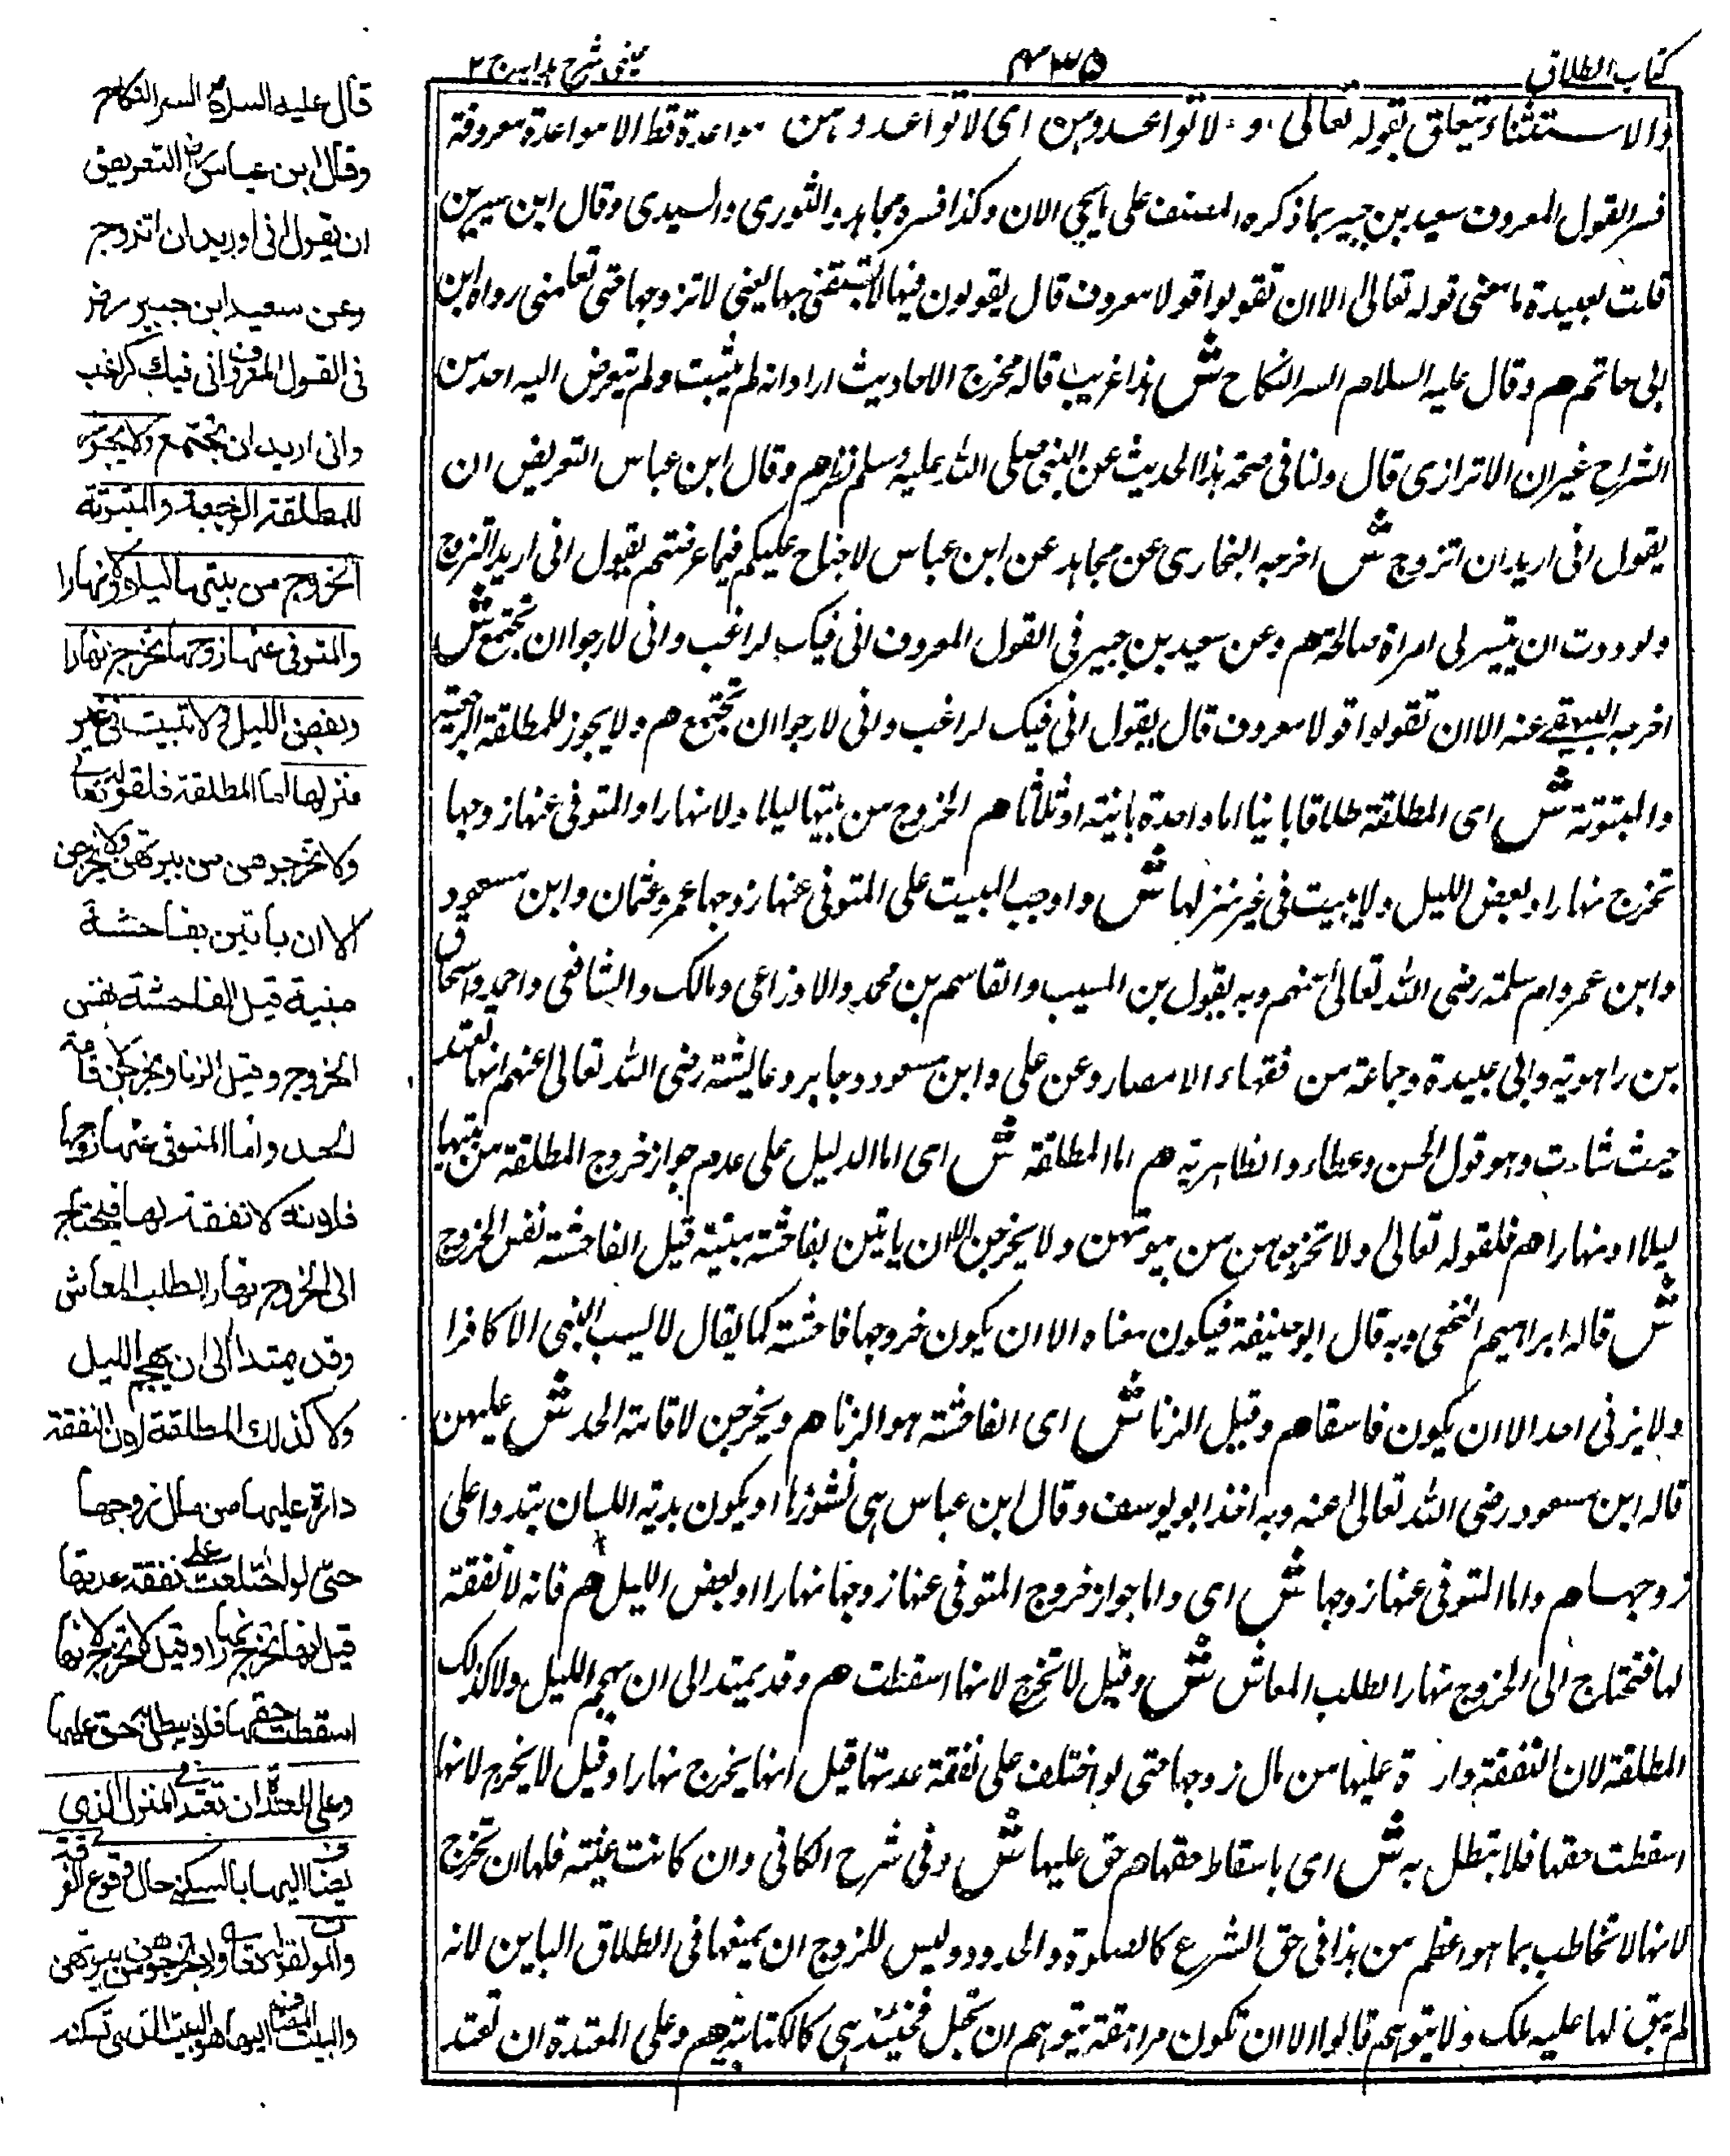 كتاب الطلاق
٤٣٥
عينى شرح هدايه ج ٢
والاستثناء يتعلق بقوله تعالى و لا تواعدوهن اى لا تواعدوهن مواعدة قط الا مواعدة معروفة
فسر القول المعروف سعيد بن جبير بما ذكره المصنف على ما يجئ الان وكذا فسره مجاهد والثورى والسدى وقال ابن سيرين
قلت لعبيدة ما معنى قوله تعالى الا ان تقولوا قولا معروف قال يقولون فيها لا تسبقنى بها يعنى لا تزوجها حتى تعلمنى رواه ابن
ابى حاتم هم وقال عليه السلام السر النكاح ش هذا غريب قاله مخرج الاحاديث اراد انه لم يثبت ولم يتعرض اليه احد من
الشراح غير ان الاترازى قال ولنا فى صحة هذا الحديث عن النبى صلى الله عليه وسلم نظر هم وقال ابن عباس التعريض ان
يقول انى اريد ان اتزوج ش اخرجه البخارى عن مجاهد عن ابن عباس لا جناح عليكم فيما عرضتم يقول انى اريد التزوج
ولوددت ان يتيسر لى امراة صالحة هم وعن سعيد بن جبير فى القول المعروف انى فيك لراغب وانى لارجوا ان نجتمع ش
اخرجه البيهقى عنه الا ان تقولوا قولا معروف قال يقول انى فيك لراغب وانى لارجوا ان نجتمع هم ولا يجوز للمطلقة الرجعية
والمبتوتة ش اى المطلقة طلاقا باينا اما واحدة باينة او ثلاثا هم الخروج من بيتها ليلا ولا نهارا والمتوفى عنها زوجها
تخرج نهارا وبعض الليل ولا يبيت فى غير منزلها ش واوجب المبيت على المتوفى عنها زوجها عمر وعثمان وابن مسعود
وابن عمر وام سلمة رضى الله تعالى عنهم وبه يقول بن المسيب والقاسم بن محمد والاوزاعى ومالك والشافعى واحمد واسحاق
بن راهويه وابى عبيدة وجماعة من فقهاء الامصار وعن على وابن مسعود وجابر وعايشة رضى الله تعالى عنهم انها تعتد
حيث شاءت وهو قول الحسن وعطاء والظاهرية هم اما المطلقة ش اى اما الدليل على عدم جواز خروج المطلقة من بيتها
ليلا او نهارا هم فلقوله تعالى ولا تخرجوهن من بيوتهن ولا يخرجن الا ان ياتين بفاحشة مبينة قيل الفاحشة نفس الخروج
ش قاله ابراهيم النخعى وبه قال ابو حنيفة فيكون معناه الا ان يكون خروجها فاحشة كما يقال لا يسب النبى الا كافرا
ولا يزنى احد الا ان يكون فاسقا هم وقيل الزنا ش اى الفاحشة هو الزنا هم ويخرجن لاقامة الحد ش عليهن
قاله ابن مسعود رضى الله تعالى عنه وبه اخذ ابو يوسف وقال ابن عباس هى نشوزها او يكون بذية اللسان تبدوا على
زوجها هم واما المتوفى عنها زوجها ش اى واما جواز خروج المتوفى عنها زوجها نهارا او بعض الليل هم فانه لا نفقة
لها فتحتاج الى الخروج نهارا لطلب المعاش ش وقيل لا تخرج لانها اسقطت هم وقد يمتد الى ان يهجم الليل ولا كذلك
المطلقة لان النفقة دارة عليها من مال زوجها حتى لو اختلف على نفقة عدتها قيل انها يخرج نهارا وقيل لا يخرج لانها
اسقطت حقها فلا يبطل به ش اى باسقاط حقها هم حق عليها ش وفى شرح الكافى وان كانت فلها ان تخرج
لانها لا تخاطب بما هو اعظم من هذا فى حق الشرع كالصلوة والحدود وليس للزوج ان يمنعها فى الطلاق الباين لانه
لم يبق لها عليه ملك ولا يتوهم قالوا الا ان تكون مراهقة يتوهم ان تحبل فحينئذ هى كالكتابية هم وعلى المعتدة ان تعتد
قال عليه السلام السر النكاح
وقال ابن عباس رض التعريض
ان يقول انى اوريد ان اتزوج
وعن سعيد ابن جبير رض
فى القول المعروف انى فيك لراغب
وانى اريد ان نجتمع ولا يجوز
للمطلقة الرجعية والمبتوتة
الخروج من بيتها ليلا ولا نهارا
والمتوفى عنها زوجها تخرج نهارا
وبعض الليل ولا تبيت فى غير
منزلها اما المطلقة فلقوله تعالى
ولا تخرجوهن من بيوتهن ولا يخرجن
الا ان ياتين بفاحشة
مبنية قيل الفاحشة نفس
الخروج وقيل الزنا ويخرجن لاقامة
الحد واما المتوفى عنها زوجها
فلانه لا نفقة لها فيحتاج
الى الخروج نهارا لطلب المعاش
وقد يمتد الى ان يهجم الليل
ولا كذلك المطلقة لان النفقة
دارة عليها من مال زوجها
حتى لو اختلعت على نفقة عدتها
قيل انها تخرج نهارا وقيل لا تخرج لانها
اسقطت حقها فلا يبطل به حق عليها
وعلى المعتدة ان تعتد فى المنزل الذى
يضاف اليها بالسكنى حال وقوع الفرقة
والموت لقوله تعالى ولا تخرجوهن من بيوتهن
والبيت المضاف اليها هو البيت الذى تسكنه